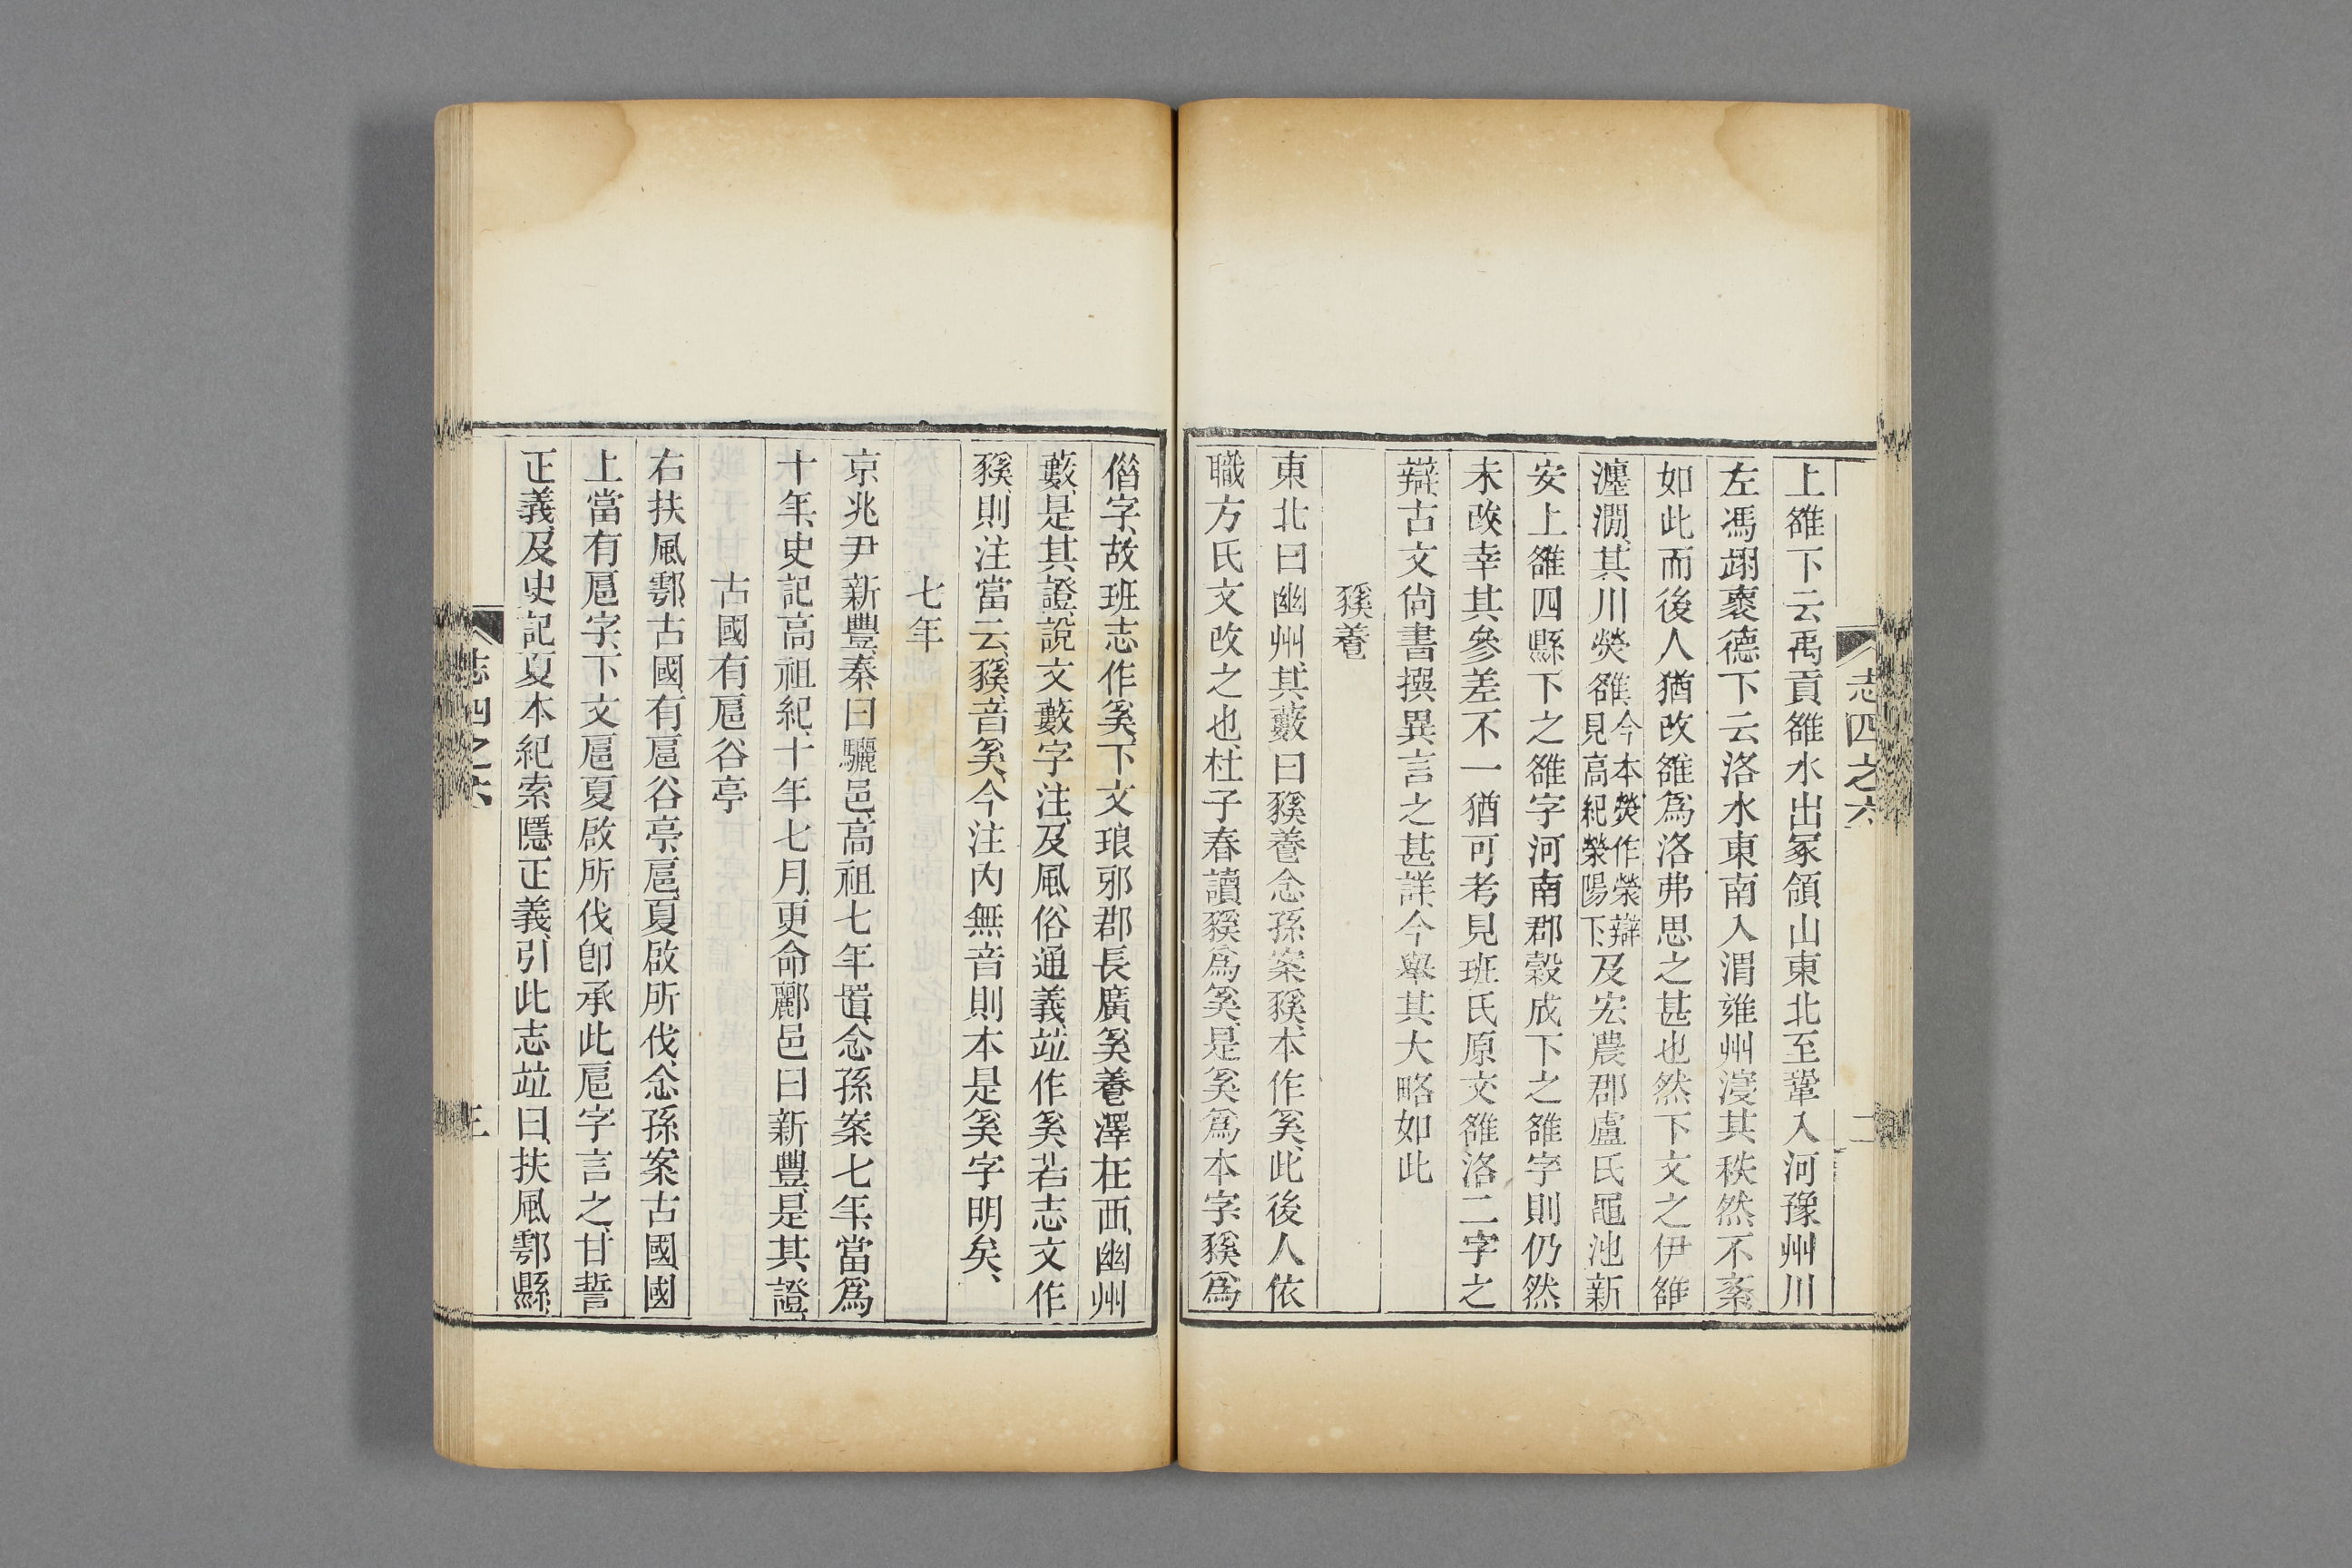 志四之六
二
上雒下云禹貢雒水出冢領山東北至鞏入河豫州川
左馮翊褱德下云洛水東南入渭雍州寖其秩然不紊
如此而後人猶改雒爲洛弗思之甚也然下文之伊雒
瀍澗其川熒雒今本熒作滎辯見高紀滎陽下及宏農郡盧氏黽池新
安上雒四縣下之雒字河南郡穀成下之雒字則仍然
未改幸其參差不一猶可考見班氏原文雒洛二字之
辯古文尙書撰異言之甚詳今舉其大略如此
豯養
東北曰幽州其藪曰豯養念孫案豯本作奚此後人依
職方氏文改之也杜子春讀豯爲奚是奚爲本字豯爲
偺字故班志作奚下文琅邪郡長廣奚養澤在西幽州
藪是其證說文藪字注及風俗通義竝作奚若志文作
豯則注當云豯音奚今注內無音則本是奚字明矣
七年
京兆尹新豐秦曰驪邑高祖七年置念孫案七年當爲
十年史記高祖紀十年七月更命酈邑曰新豐是其證
古國有扈谷亭
右扶風鄠古國有扈谷亭扈夏啟所伐念孫案古國國
上當有扈字下文扈夏啟所伐卽承此扈字言之甘誓
正義及史記夏本紀索隱正義引此志竝曰扶風鄠縣
志四之六
三